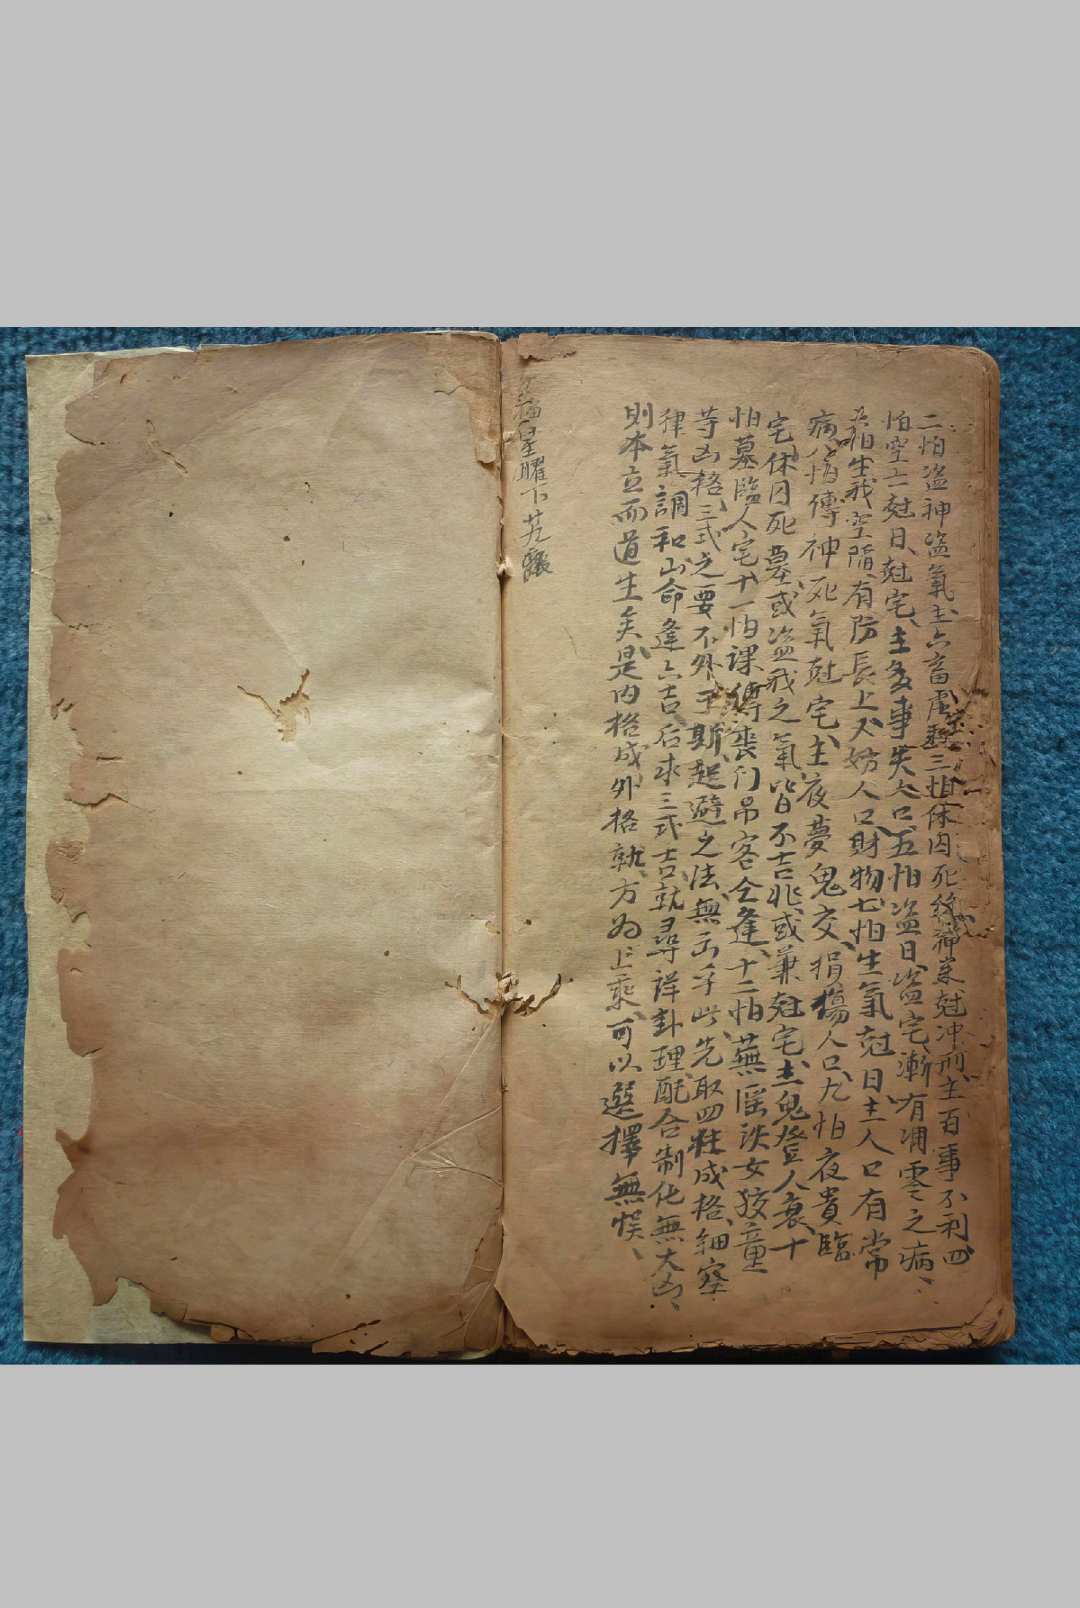 二怕盗神盗氣主六畜虛耗三怕休囚死絶神來尅冲刑主百事不利四
怕空亡尅日尅宅主多事失人口五怕盗日盗宅漸有凋零之病
怕生我空陷有防長上又妨人口財物七怕生氣尅日主人口有常
病八怕傳神死氣尅宅主夜夢鬼交捐傷人口九怕夜貴臨
宅休囚死墓或盗我之氣皆不吉兆或兼尅宅主鬼登人衰十
怕墓臨人宅十一怕課傳喪门吊客仝逢十二怕蕪謡泆女狡童
等凶格三式之要不外乎斯起避之法無出乎此先取四柱成格細察
律氣調和山命逢六吉后求三式吉就尋詳卦理配合制化無大凶
則本立而道生矣是内格成外格就方为上乘可以選擇無悮
福星曜下